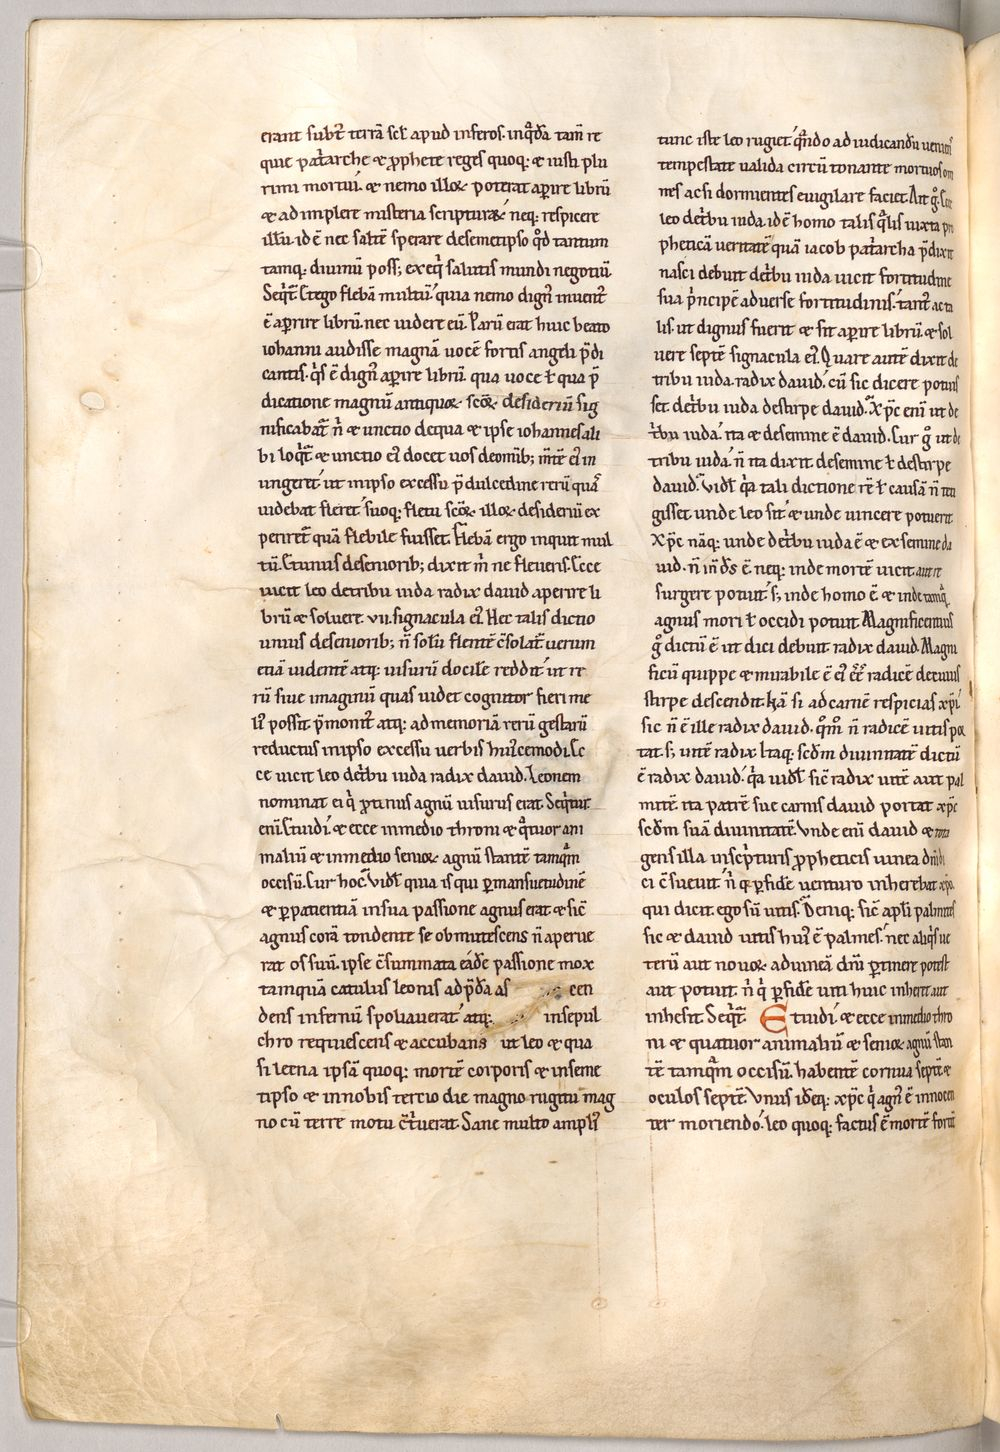 erant subt᷑ terrā scił apud inferos. in qͣ᷑da tam̄ re
quie pat͛arche ⁊ ꝓphete reges quoq; ⁊ iusti plu
rimi mortui. ⁊ nemo illoꝝ poterat apꝛire librū
⁊ adimplere misteria scripturaꝝ neq; respicere
illū. id ē nec saltē sperare de semetipso qd̄ tantum
tamq; diuinū poss; exeq̇ salutis mundi negotiū.
Seqͥt᷑. Et ego flebā multū. quia nemo dignꝰ inuent᷑
ē apꝛire librū. nec uidere eū. Parū erat huic beato
iohanni audisse magnā uocē fortis angeli p̄di
cantis. qͥs ē dignꝰ apꝛire librū. qua uoce ł qua p̄
dicatione magnū antiquoꝝ scōꝝ desideriū sig
nificabat᷑. n̄ ⁊ unctio de qua ⁊ ipse iohannes ali
bi loqͥt᷑ ⁊ unctio eiꝰ docet uos de omīb; m̄tē eiꝰ in
ungeret. ut in ipso excessu p̄ dulcedine rerū quaꝰ
uidebat fleret. suoq; fletu scōꝝ illoꝝ desideriū ex
periret᷑ quā flebile fuisset. Flebā ergo inquit mul
tū. Et unus de seniorib; dixit m̄ ne fleueris. Ecce
uicit leo de tribu iuda radix dauid aperire li
brū ⁊ soluere .vii. signacula eiꝰ. Hec talis dictio
unius de seniorib; n̄ solū flentē c̄solat᷑ uerum
etiā uidentē atq; uisurū docilē reddit. ut re
rū siue imaginū quas uidet cognitor fieri me
liꝰ possit p̄monit᷑ atq; ad memoriā rerū gestarū
reductus in ipso excessu uerbis huiꝰcemodi. Ec
ce uicit leo de tͥbu iuda radix dauid. Leonem
nominat ei qͥ ꝓtinus agnū uisurus erat. Seqͥtur
enī. Et uidi. ⁊ ecce in medio throni ⁊ qͣtuor ani
maliū ⁊ in medio senioꝝ agnū stantē tamqͣm
occisū. Cur hoc. Vidł quia is qui ꝑ mansuetudinē
⁊ ꝑ patientiā in sua passione agnus erat ⁊ sic̄
agnus corā tondente se obmutescens n̄ aperue
rat os suū. ipse c̄summata eādē passione mox
tamquā catulus leonis ad p̄dā as cen
dens infernū spoliauerat. atq; in sepul
chro requiescens ⁊ accubans ut leo ⁊ qua
si leena ipsā quoq; mortē corporis ⁊ in seme
tipso ⁊ in nobis tercio die magno rugitu mag
no cū terre motu c̄t᷑uerat. Sane multo ampliꝰ
tunc iste leo rugiet. qͣndo ad iudicandū ueniens
tempestate ualida circū tonante mortuos om
nes ac si dormientes euigilare faciet. Ait gͦ. Ecce
leo de tͥbu iuda. id ē homo talis qͣlis iuxta pro
pheticā ueritatē quā iacob pat͛archa p̄dixit
nasci debuit de tͥbu iuda uicit fortitudine
sua pͥncipē aduerse fortitudinis. tant᷑ ac ta
lis ut dignus fuerit ⁊ sit apꝛire librū. ⁊ sol
uere septē signacula eiꝰ. Quare autē dixit de
tribu iuda. radix dauid. cū sic dicere potuis
set de tͥbu iuda de stirpe dauid. Xp̄c enī ut de
tͥbu iuda. ita ⁊ de semine ē dauid. Cur gͦ ut de
tribu iuda. n̄ ita dixit de semine ł de stirpe
dauid. Vidł qͥa tali dictione rē ł causā n̄ teti
gisset unde leo sit. ⁊ unde uincere potuerit.
Xp̄c nāq; unde de tͥbu iuda ē ⁊ ex semine da
uid. n̄ in d̄s ē. neq; inde mortē uicit aut re
surgere potuit. s; inde homo ē ⁊ inde tamqͣ
agnus mori ł occidi potuit. Magnificentius
gͦ dictū ē ut dici debuit radix dauid. Magni
ficū quippe ⁊ mirabile ē eiꝰ eē radicē de cuius
stirpe descendit. Nā si ad carnē respicias xp̄i
sic n̄ ē ille radix dauid. qm̄ n̄ radicē uitis poꝛ
tat. s; uitē radix. Itaq; scd̄m diuinitatē dictū
ē radix dauid. qͥa uidł sic̄ radix uitē aut pal
mitē ita patrē sue carnis dauid portat xp̄c
scd̄m suā diuinitatē. Vnde enī dauid ⁊ tota
gens illa in scͥpturis ꝓpheticis uinea dn̄i di
ci c̄sueuit. n̄ q ꝑ fidē uenturo inherebat xp̄o.
qui dicit. ego sū uitis. Deniq; sic̄ apłi palmites
sic ⁊ dauid uitis huiꝰ ē palmes. nec aliqͥs ue
terū aut nouoꝝ ad uineā dn̄i ꝑtinere potest
aut potuit. n̄ qͥ ꝑ fidē uiti huic inherit aut
inhesit. Seqͥt᷑. Et uidi. ⁊ ecce in medio thro
ni ⁊ quatuor animaliū ⁊ senioꝝ agnū stan
tē tamqͣm occisū. habentē cornua septē ⁊
oculos septē. Vnus idēq; xp̄c qͥ agnꝰ ē innocen
ter moriendo. leo quoq; factus ē mortē fortit᷑